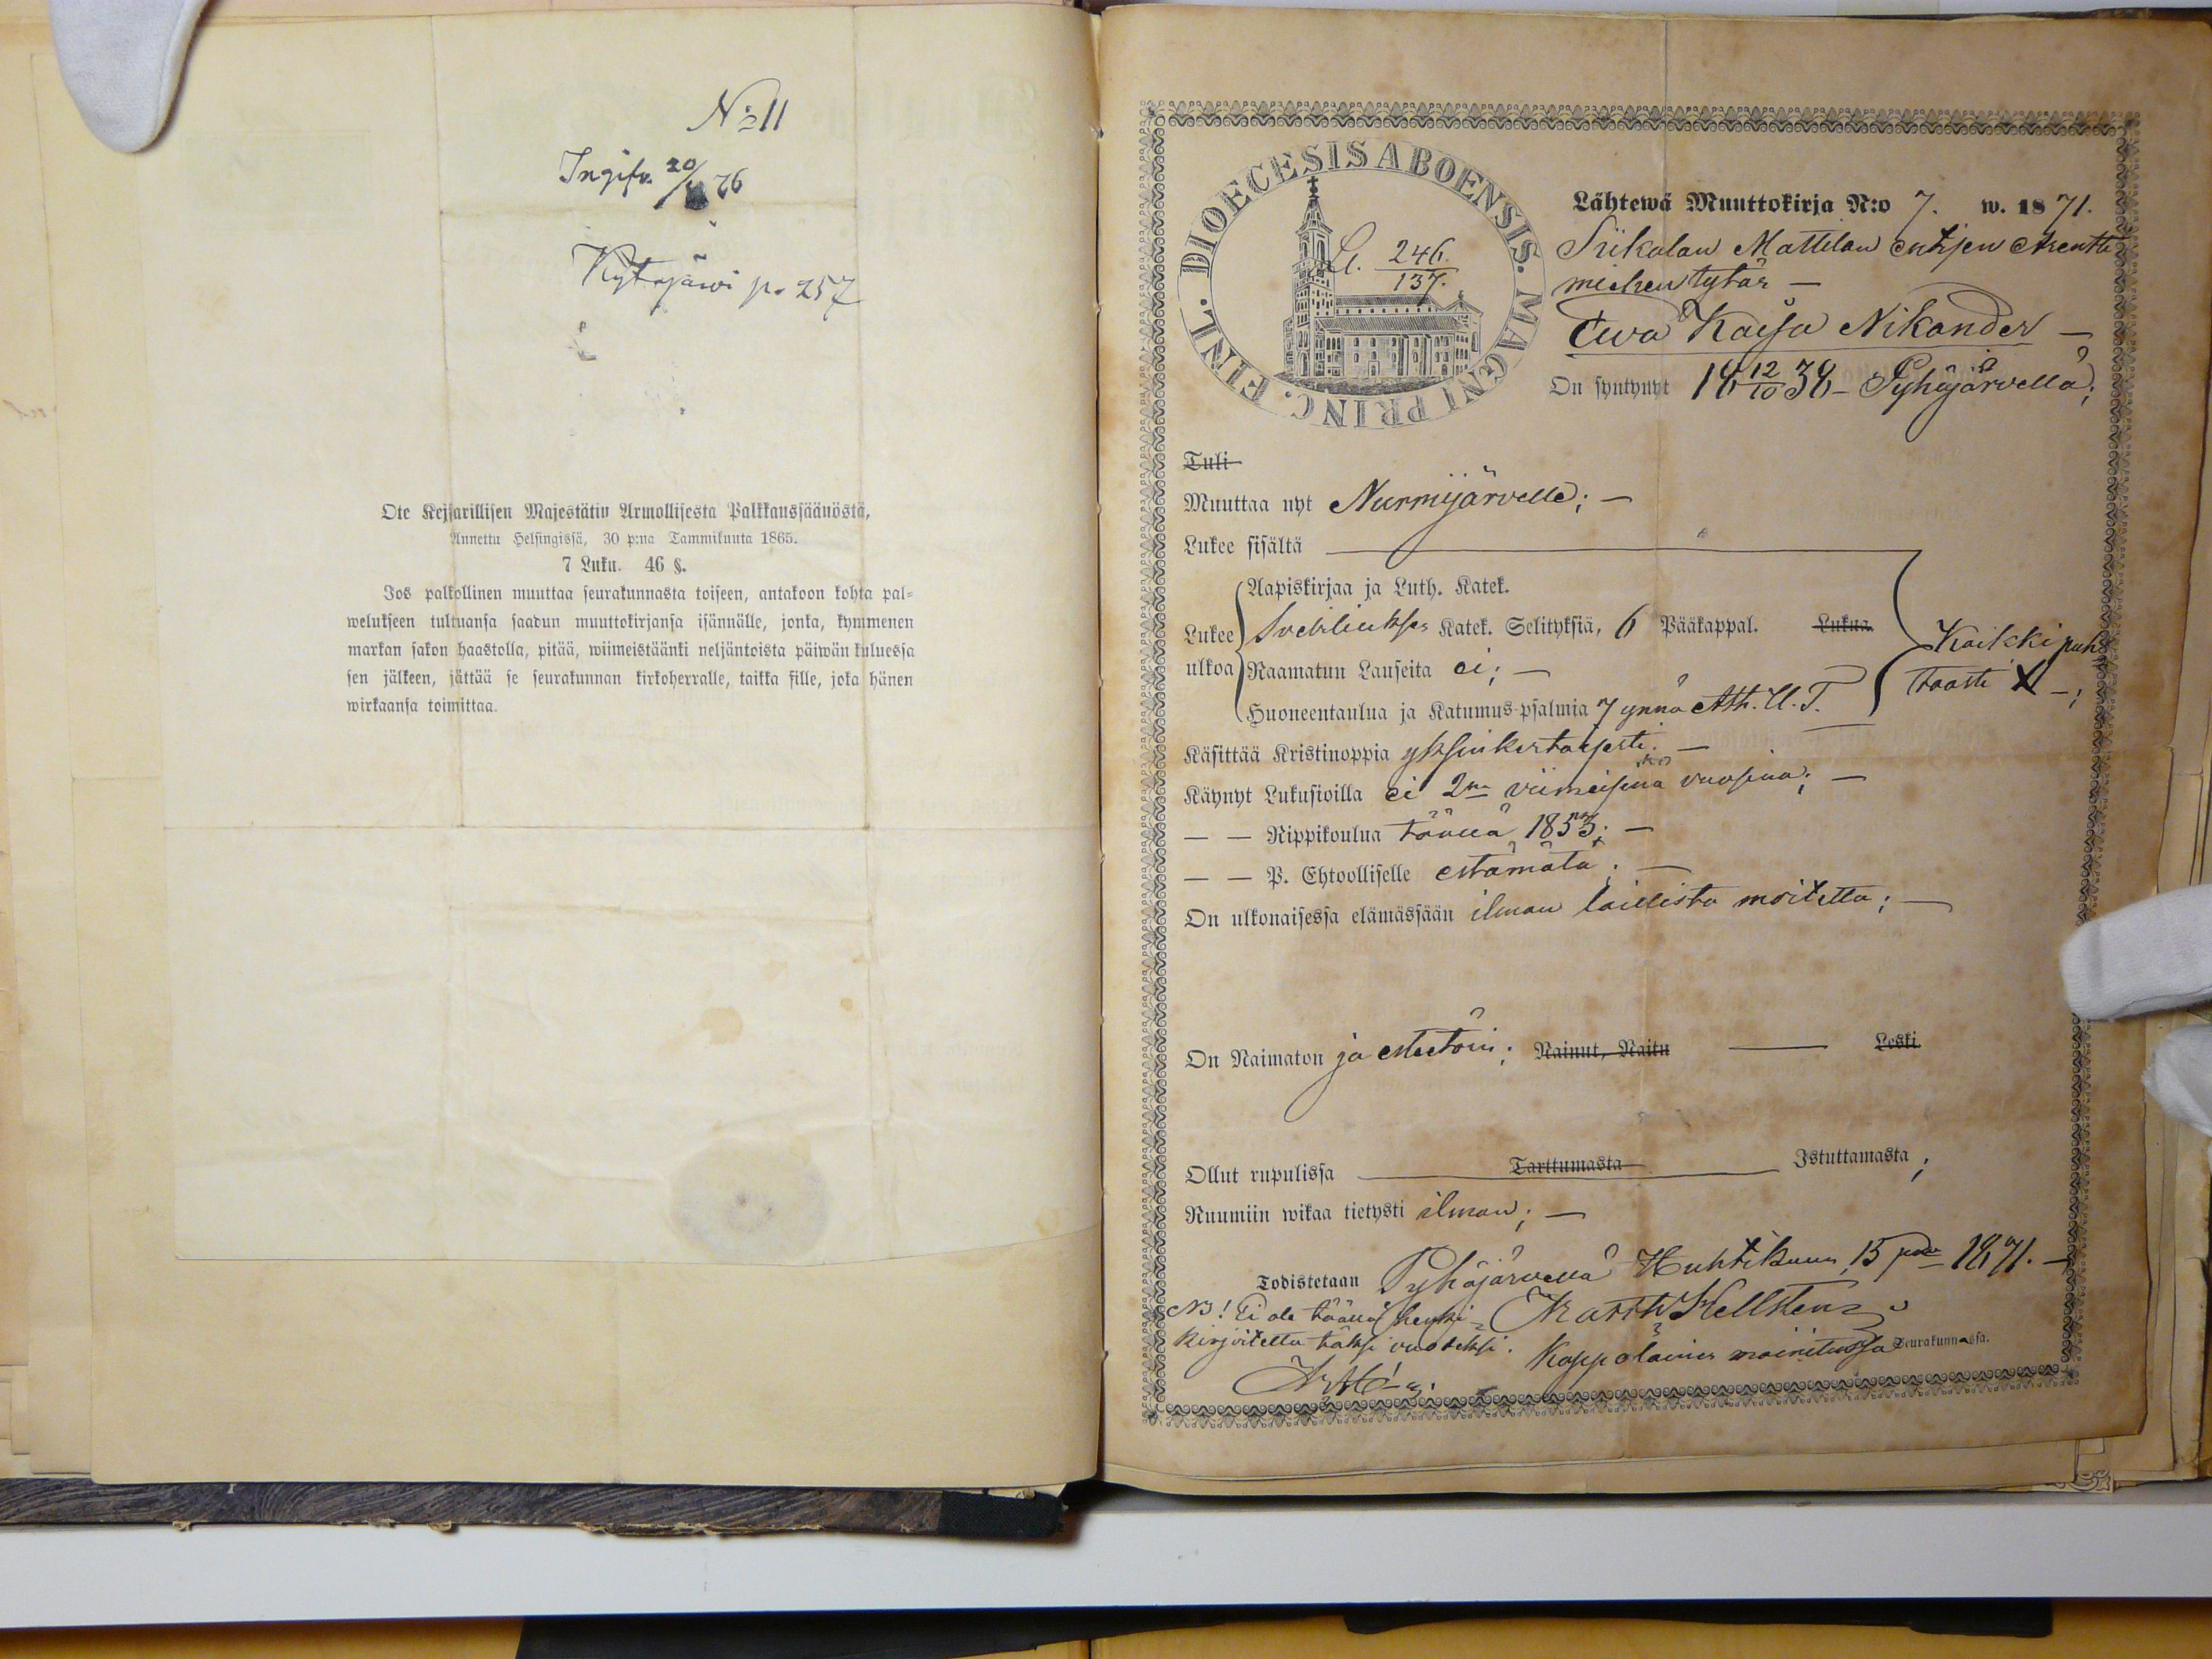 N:o 11
Ingifv. 20/ 76
Kytäjärvi p. 257
Ote Kejsarillisen Majestätin Armollisesta Palkkaussäänöstä,
Annettu Helsingissä, 30 p:nä Tammikuuta 1865.
7 Luku. 46 §.
Jos palkollinen muuttaa seurakunnasta toiseen, antakoon kohta pal=
welukseen tultuansa saadun muuttokirjansa isännälle, jonka, kymmenen
markan sakon haastolla, pitää, wiimeistäänki neljäntoista päiwän kuluessa
sen jälkeen, jättää se seurakunnan kirkoherralle, taikka sille, joka hänen
wirkaansa toimittaa.
DIOECESIS ABOENSIS. MAGNI PRINC. FINL.
S. 246.
137.
Lähtewä Muuttokirja N:o 7. w. 1871.
Siikalan Mattilan entisen Arenti
miehen tytär —
Ewa Kaisa Nikander —
On syntynyt 18 12/10 38 – Pyhäjärvellä;
Tuli
Muuttaa nyt Nurmijärvelle; —
Lukee sisältä
Aapiskirjaa ja Luth. Katek.
Lukee Svebiliuksen Katek. Selityksiä, 6 Pääkappal. Lukua
ulkoa Raamatun Lauseita ei; —
Huoneentaulua ja Katumus-psalmia 7 ynnä Ath. U. T.
Kaikki puh
taasti X —;
Käsittää Kristinoppia yksinkertaisesti. —
Käynyt Lukusioilla ei 2na viimeisinä vuosina; —
— — Rippikoulua täällä 1853; —
— — P. Ehtoolliselle estämätä; —
On ulkonaisessa elämässään ilman laillista moitetta; —
On Naimaton ja esteetöin; Nainut, Naitu — Leski
Ollut rupulissa Tarttumasta Istuttamasta;
Ruumiin wikaa tietysti ilman; —
Todistetaan Pyhäjärvellä Huhtikuun 15 pnä 1871. —
NB! Ei ole täällä henki= Hellstén
kirjoitettu täksi vuodeksi. Kappalainen mainitussa Seurakunnassa.